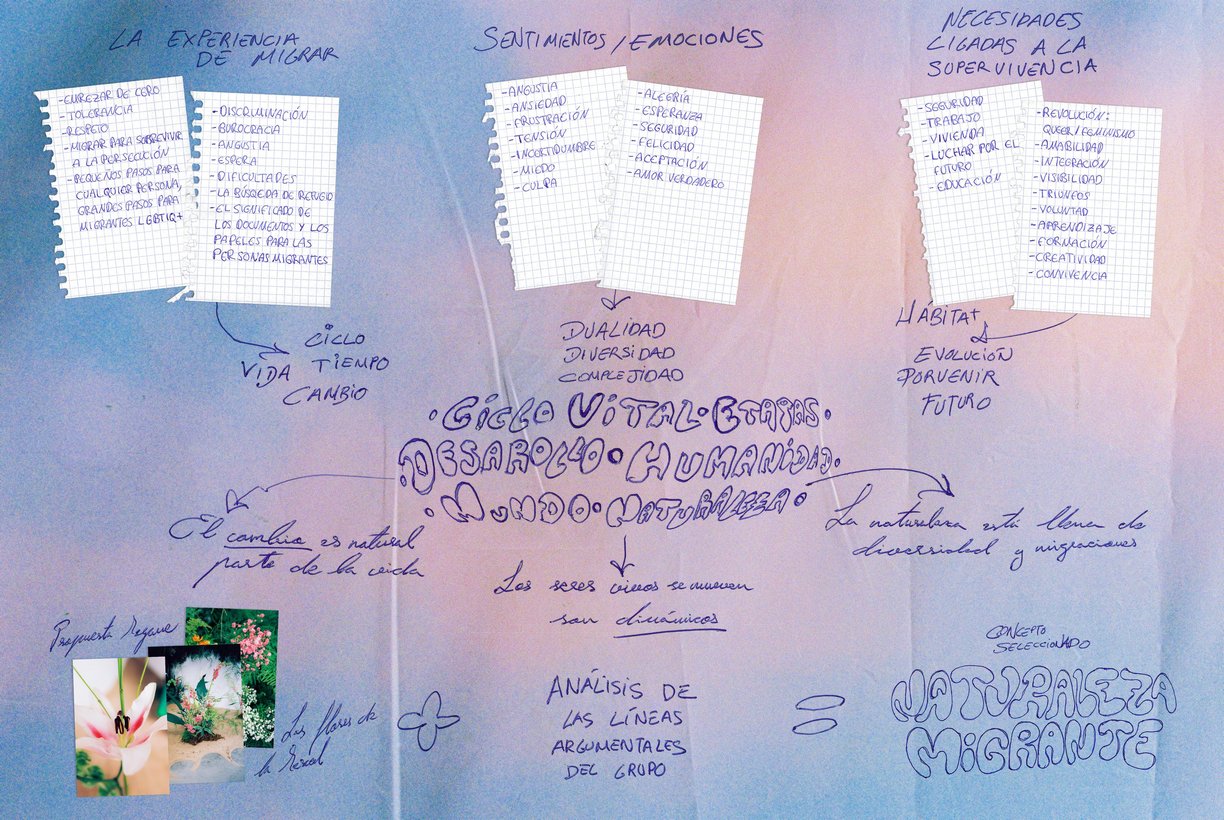 LA EXPERIENCIA
DE MIGRAR
-EMPEZAR DE CERO
-TOLERANCIA
-RESPETO
-MIGRAR PARA SOBREVIVIR
A LA PERSECUCIÓN
-PEQUEÑOS PASOS PARA
CUALQUIER PERSONA,
GRANDES PASOS PARA
MIGRANTES LGBTIQ+
-DISCRIMINACIÓN
-BUROCRACIA
-ANGUSTIA
-ESPERA
-DIFICULTADES
-LA BÚSQEDA DE REFUGIO
-EL SIGNIFICADO DE
LOS DOCUMENTOS Y LOS
PAPELES PARA LAS
PERSONAS MIGRANTES
CICLO
VIDA TIEMPO
CAMBIO
SENTIMIENTOS/EMOCIONES
-ANGUSTIA
-ANSIEDAD
-FRUSTRACIÓN
-TENSIÓN
-INCERTIDUMBRE
-MIEDO
-CULPA
-ALEGRÍA
-ESPERANZA
-SEGURIDAD
-FELICIDAD
-ACEPTACIÓN
-AMOR VERDADERO
DUALIDAD
DIVERSIDAD
COMPLEJIDAD
NECESIDADES
LIGADAS A LA
SUPERVIVENCIA
-SEGURIDAD
-TRABAJO
-VIVIENDA
-LUCHAR POR EL
FUTURO
-EDUCACIÓN
-REVOLUCIÓN:
QUEER/FEMINISMO
-AMABILIDAD
-INTEGRACIÓN
-VISIBILIDAD
-TRIUNFOS
-VOLUNTAD
-APRENDIZAJE
-FORMACIÓN
-CREATIVIDAD
-CONVIVENCIA
HÁBITAT
EVOLUCIÓN
PORVENIR
FUTURO
•CICLO VITAL•ETAPAS•
DESAROLLO•HUMANIDAD•
•MUNDO•NATURALEZA•
El cambio es natural
parte de la vida
Los seres vivos se mueven
son dinámicos
La naturaleza está llena de
diversidad y migraciones
Propuesta
Las flores de
la
ANÁLISIS DE
LAS LÍNEAS
ARGUMENTALES
DEL GRUPO
=
CONCEPTO
SELECCIONADO
NATURALEZA
MIGRANTE